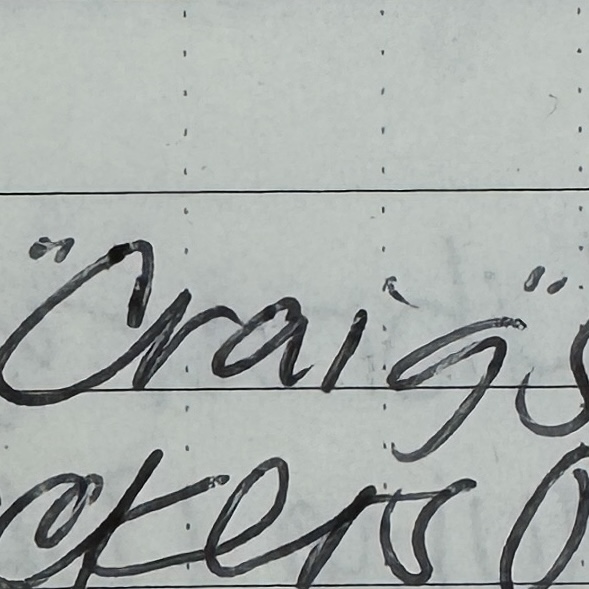 "Craig"
ckers